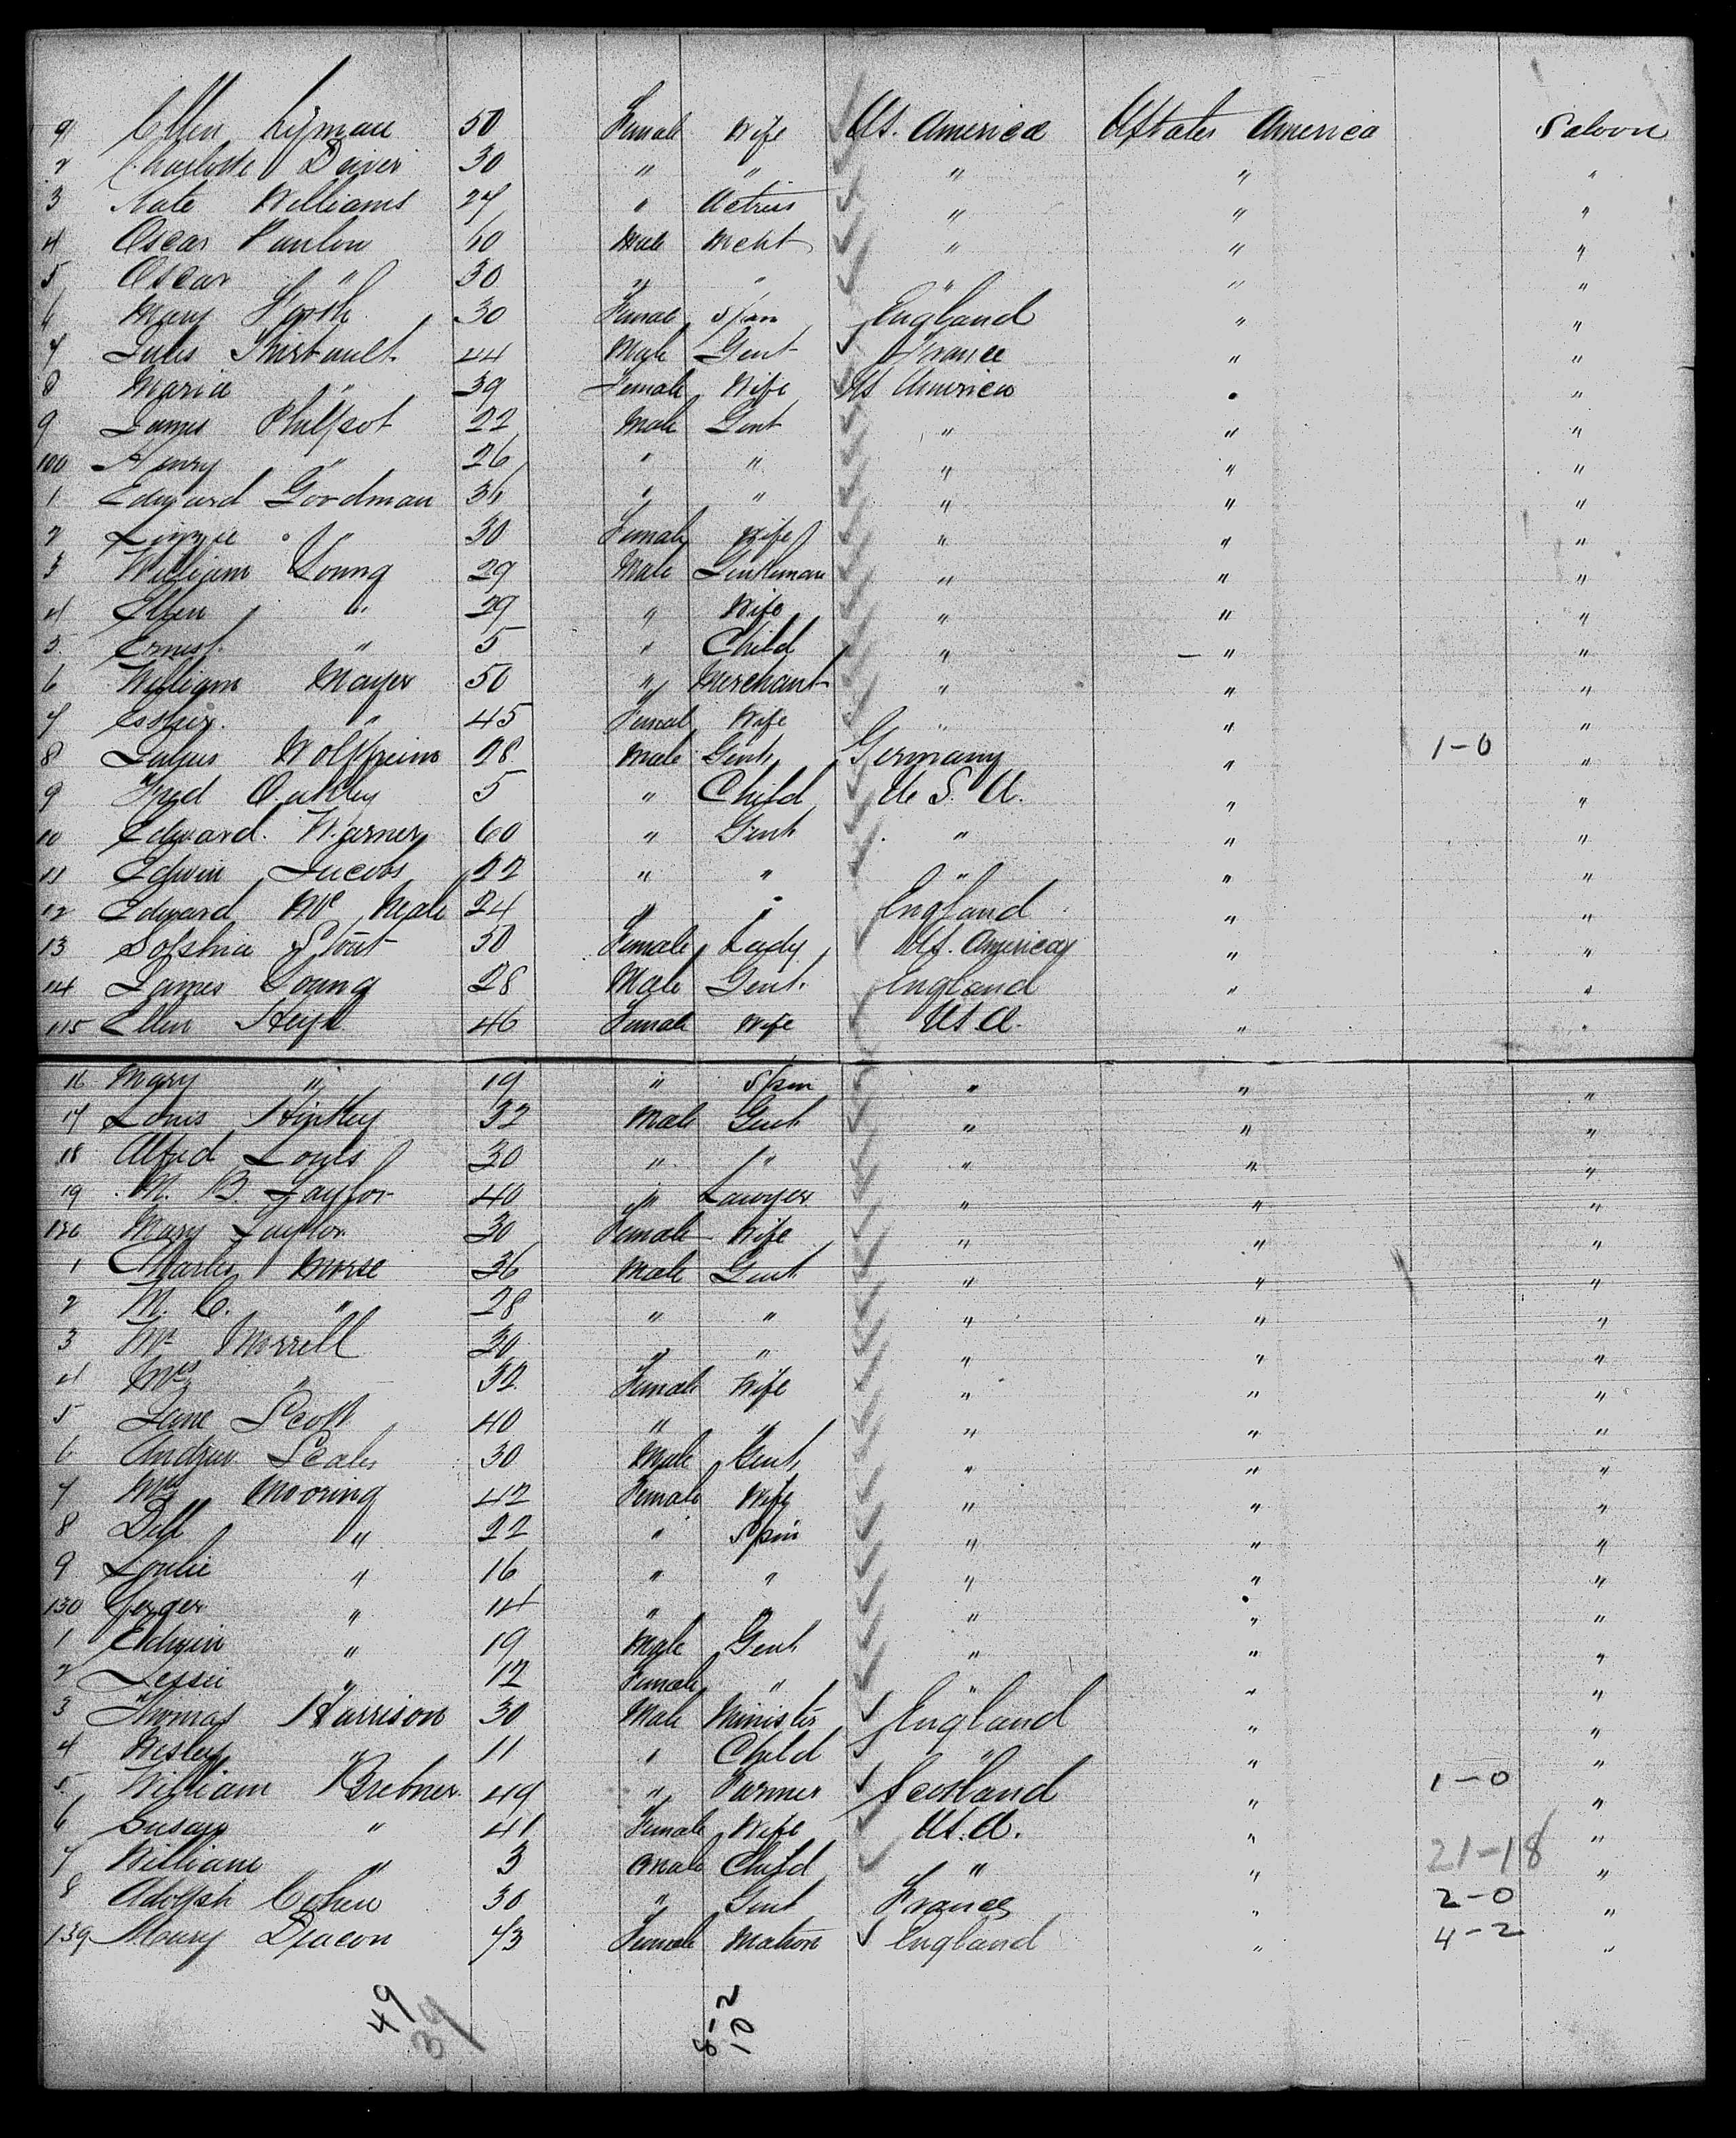 91 Ellen Lyman 50 Female Wife Ut. America UStates America Saloon
2 Charlotte 30 " " " " "
3 Kate Williams 27 " Actriss " " "
4 Oscar 60 Male Mcht " " "
5 Oscar " 30 " " " " "
6 Mary 30 Female Spin England " "
7 Jules 44 Male Gent France " "
8 Maria " 39 Female Wife Ut America " "
9 James Philpot 22 Male Gent " " "
100 Henry " 26 " " " " "
1 Edward Goodman 36 " " " " "
2 Lizzie " 30 Female Wife " " "
3 William Young 29 Male Gentleman " " "
4 Ellen " 29 " Wife " " "
5 Ernest " 5 " Child " — " "
6 William Mayer 50 " Merchant " " "
7 Esther " 45 Female Wife " " "
8 28 Male Gent Germany " 1-0 "
9 Fred Oakley 5 " Child U.S.A. " "
10 Edward Warner 60 " Gent " " "
11 Edwin Jacobs 22 " " " " "
12 Edward Mc Neale 24 " " England " "
13 Sophia Stout 50 Female Lady Ut. America " "
14 James Young 28 Male Gent. England " "
115 Ellen 46 Female Wife Ut A. " "
16 Mary " 19 " Spin " " "
17 Louis Hinkley 32 Male Gent " " "
18 Alfred Louis 30 " " " " "
19 M. B. Taylor 40 " Lawyer " " "
120 Mary Taylor 30 Female Wife " " "
1 Charles Morse 36 Male Gent " " "
2 M. C. " 28 " " " " "
3 Mr Morrell 30 " " " " "
4 Mrs " 32 Female Wife " " "
5 Jane Scott 40 " " " " "
6 Andrew Scales 30 Male Gent " " "
7 Mrs Mooring 42 Female Wife " " "
8 Dell " 22 " Spin " " "
9 Loulie " 16 " " " " "
130 " 14 " " " " "
1 Edwin " 19 Male Gent " " "
2 Jessie " 12 Female " " " "
3 Thomas Harrison 30 Male Minister England " "
4 Wesley " 11 " Child " " "
5 William Brebner 49 " Farmer Scotland " 1-0 "
6 Susan " 41 Female Wife Ut. A. " "
7 William " 3 Male Child " " 21-18 "
8 Adolph Cohen 30 " Gent France " 2-0 "
139 Maury Deacon 73 Female Matron England " 4-2 "
49 39 8-2 10